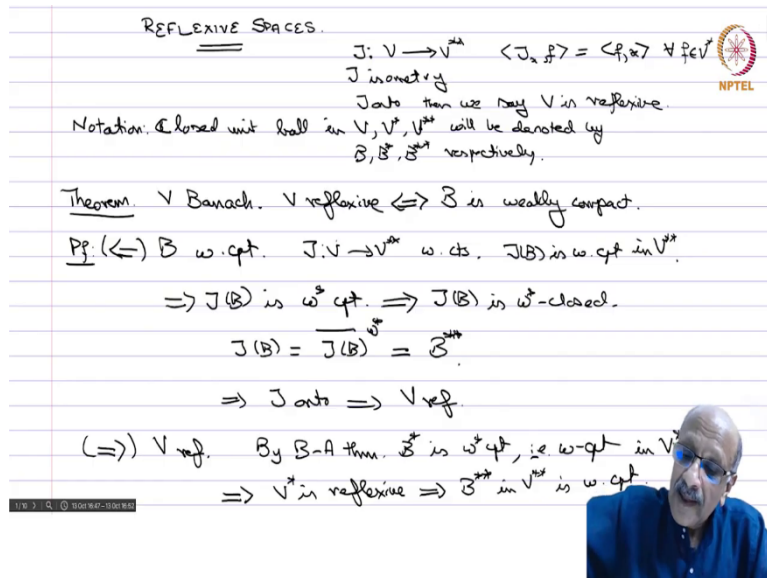 REFLEXIVE SPACES.
J: V ⟶ V** <J_x, f> = <f, x> ∀ f∈V*
NPTEL
J isometry
J onto then we say V is reflexive.
Notation: Closed unit ball in V, V*, V** will be denoted by
B, B*, B** respectively.
Theorem. V Banach. V reflexive <=> B is weakly compact.
Pf: (<=) B w. cpt. J: V → V** w. cts. J(B) is w. cpt in V**.
=> J(B) is w* cpt. => J(B) is w*-closed.
J(B) = \overline{J(B)}^{w*} = B**.
=> J onto => V ref.
(=>) V ref. By B-A thm. B* is w* cpt, i.e. w-cpt in V*
=> V* is reflexive => B** in V** is w. cpt.
1/10 13 Oct 16:47 - 13 Oct 16:52